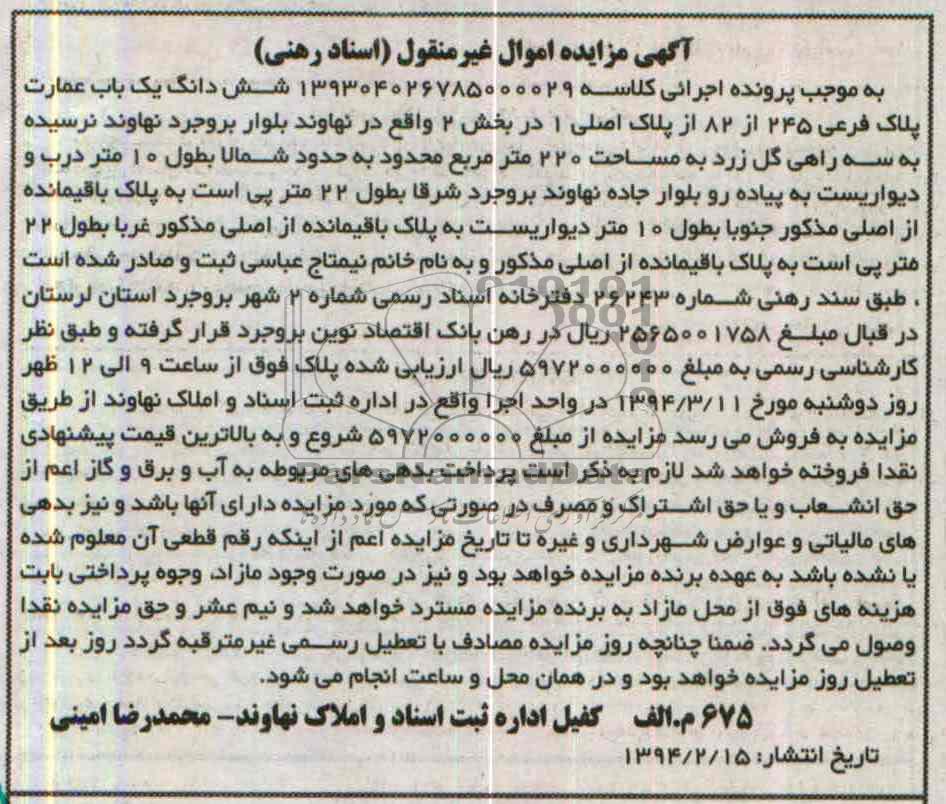 آگهی مزایده اموال غیرمنقول (اسناد رهنی)
به موجب پرونده اجرائی کلاسه ۱۳۹۳۰۴۰۲۶۷۸۵۰۰۰۰۲۹ شش دانگ یک باب عمارت
پلاک فرعی ۲۴۵ از ۸۲ از پلاک اصلی ۱ در بخش ۲ واقع در نهاوند بلوار بروجرد نهاوند نرسیده
به سه راهی گل زرد به مساحت ۲۲۰ متر مربع محدود به حدود شمالا بطول ۱۰ متر درب و
دیواریست به پیاده رو بلوار جاده نهاوند بروجرد شرقا بطول ۲۲ متر پی است به پلاک باقیمانده
از اصلی مذکور جنوبا بطول ۱۰ متر دیواریست به پلاک باقیمانده از اصلی مذکور غربا بطول ۲۲
متر پی است به پلاک باقیمانده از اصلی مذکور و به نام خانم نیمتاج عباسی ثبت و صادر شده است
، طبق سند رهنی شماره ۲۶۲۴۳ دفترخانه اسناد رسمی شماره ۲ شهر بروجرد استان لرستان
در قبال مبلغ ۲۵۶۵۰۰۱۷۵۸ ریال در رهن بانک اقتصاد نوین بروجرد قرار گرفته و طبق نظر
کارشناسی رسمی به مبلغ ۵۹۷۲۰۰۰۰۰۰ ریال ارزیابی شده پلاک فوق از ساعت ۹ الی ۱۲ ظهر
روز دوشنبه مورخ ۱۳۹۴/۳/۱۱ در واحد اجرا واقع در اداره ثبت اسناد و املاک نهاوند از طریق
مزایده به فروش می رسد مزایده از مبلغ ۵۹۷۲۰۰۰۰۰۰ شروع و به بالاترین قیمت پیشنهادی
نقدا فروخته خواهد شد لازم به ذکر است پرداخت بدهی های مربوطه به آب و برق و گاز اعم از
حق انشعاب و یا حق اشتراک و مصرف در صورتی که مورد مزایده دارای آنها باشد و نیز بدهی
های مالیاتی و عوارض شهرداری و غیره تا تاریخ مزایده اعم از اینکه رقم قطعی آن معلوم شده
یا نشده باشد به عهده برنده مزایده خواهد بود و نیز در صورت وجود مازاد، وجوه پرداختی بابت
هزینه های فوق از محل مازاد به برنده مزایده مسترد خواهد شد و نیم عشر و حق مزایده نقدا
وصول می گردد. ضمنا چنانچه روز مزایده مصادف با تعطیل رسمی غیرمترقبه گردد روز بعد از
تعطیل روز مزایده خواهد بود و در همان محل و ساعت انجام می شود.
۶۷۵ م.الف کفیل اداره ثبت اسناد و املاک نهاوند- محمدرضا امینی
تاریخ انتشار: ۱۳۹۴/۲/۱۵